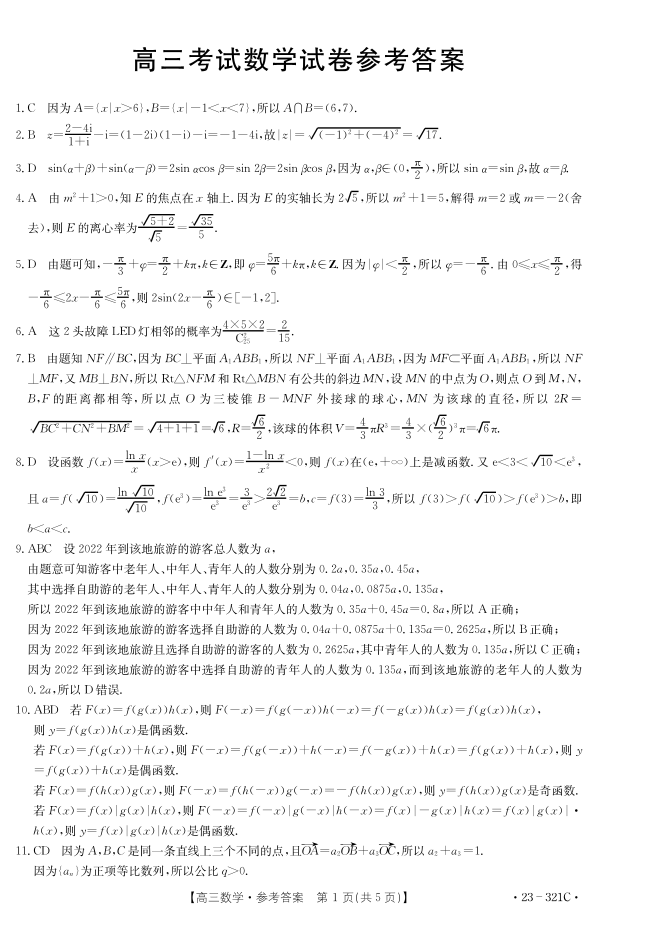 高三考试数学试卷参考答案
1. C 因为 A={x|x>6},B={x|-1<x<7},所以 A∩B=(6,7).
2. B z=\frac{2-4i}{1+i}-i=(1-2i)(1-i)-i=-1-4i,故|z|=\sqrt{(-1)^2+(-4)^2}=\sqrt{17}.
3. D sin(α+β)+sin(α-β)=2sin αcos β=sin 2β=2sin βcos β,因为 α,β∈(0,\frac{π}{2}),所以 sin α=sin β,故 α=β.
4. A 由 m²+1>0,知 E 的焦点在 x 轴上.因为 E 的实轴长为 2\sqrt{5},所以 m²+1=5,解得 m=2 或 m=-2(舍
去),则 E 的离心率为\frac{\sqrt{5+2}}{\sqrt{5}}=\frac{\sqrt{35}}{5}.
5. D 由题可知,-\frac{π}{3}+φ=\frac{π}{2}+kπ,k∈Z,即 φ=\frac{5π}{6}+kπ,k∈Z.因为|φ|<\frac{π}{2},所以 φ=-\frac{π}{6}.由 0≤x≤\frac{π}{2},得
-\frac{π}{6}≤2x-\frac{π}{6}≤\frac{5π}{6},则 2sin(2x-\frac{π}{6})∈[-1,2].
6. A 这 2 头故障 LED 灯相邻的概率为\frac{4×5×2}{C_{25}^{2}}=\frac{2}{15}.
7. B 由题知 NF∥BC,因为 BC⊥平面 A₁ABB₁,所以 NF⊥平面 A₁ABB₁,因为 MF⊂平面 A₁ABB₁,所以 NF
⊥MF,又 MB⊥BN,所以 Rt△NFM 和 Rt△MBN 有公共的斜边 MN,设 MN 的中点为 O,则点 O 到 M,N,
B,F 的距离都相等,所以点 O 为三棱锥 B-MNF 外接球的球心,MN 为该球的直径,所以 2R=
\sqrt{BC²+CN²+BM²}=\sqrt{4+1+1}=\sqrt{6},R=\frac{\sqrt{6}}{2},该球的体积 V=\frac{4}{3}πR³=\frac{4}{3}×(\frac{\sqrt{6}}{2})³π=\sqrt{6}π.
8. D 设函数 f(x)=\frac{ln x}{x}(x>e),则 f′(x)=\frac{1-ln x}{x²}<0,则 f(x)在(e,+∞)上是减函数.又 e<3<\sqrt{10}<e³,
且 a=f(\sqrt{10})=\frac{ln \sqrt{10}}{\sqrt{10}},f(e³)=\frac{ln e³}{e³}=\frac{3}{e³}>\frac{2\sqrt{2}}{e³}=b,c=f(3)=\frac{ln 3}{3},所以 f(3)>f(\sqrt{10})>f(e³)>b,即
b<a<c.
9. ABC 设 2022 年到该地旅游的游客总人数为 a,
由题意可知游客中老年人、中年人、青年人的人数分别为 0.2a,0.35a,0.45a,
其中选择自助游的老年人、中年人、青年人的人数分别为 0.04a,0.0875a,0.135a,
所以 2022 年到该地旅游的游客中中年人和青年人的人数为 0.35a+0.45a=0.8a,所以 A 正确;
因为 2022 年到该地旅游的游客选择自助游的人数为 0.04a+0.0875a+0.135a=0.2625a,所以 B 正确;
因为 2022 年到该地旅游且选择自助游的游客的人数为 0.2625a,其中青年人的人数为 0.135a,所以 C 正确;
因为 2022 年到该地旅游的游客中选择自助游的青年人的人数为 0.135a,而到该地旅游的老年人的人数为
0.2a,所以 D 错误.
10. ABD 若 F(x)=f(g(x))h(x),则 F(-x)=f(g(-x))h(-x)=f(-g(x))h(x)=f(g(x))h(x),
则 y=f(g(x))h(x)是偶函数.
若 F(x)=f(g(x))+h(x),则 F(-x)=f(g(-x))+h(-x)=f(-g(x))+h(x)=f(g(x))+h(x),则 y
=f(g(x))+h(x)是偶函数.
若 F(x)=f(h(x))g(x),则 F(-x)=f(h(-x))g(-x)=-f(h(x))g(x),则 y=f(h(x))g(x)是奇函数.
若 F(x)=f(x)|g(x)|h(x),则 F(-x)=f(-x)|g(-x)|h(-x)=f(x)|-g(x)|h(x)=f(x)|g(x)|·
h(x),则 y=f(x)|g(x)|h(x)是偶函数.
11. CD 因为 A,B,C 是同一条直线上三个不同的点,且\overrightarrow{OA}=a₂\overrightarrow{OB}+a₃\overrightarrow{OC},所以 a₂+a₃=1.
因为{aₙ}为正项等比数列,所以公比 q>0.
【高三数学·参考答案 第 1 页(共 5 页)】 ·23-321C·